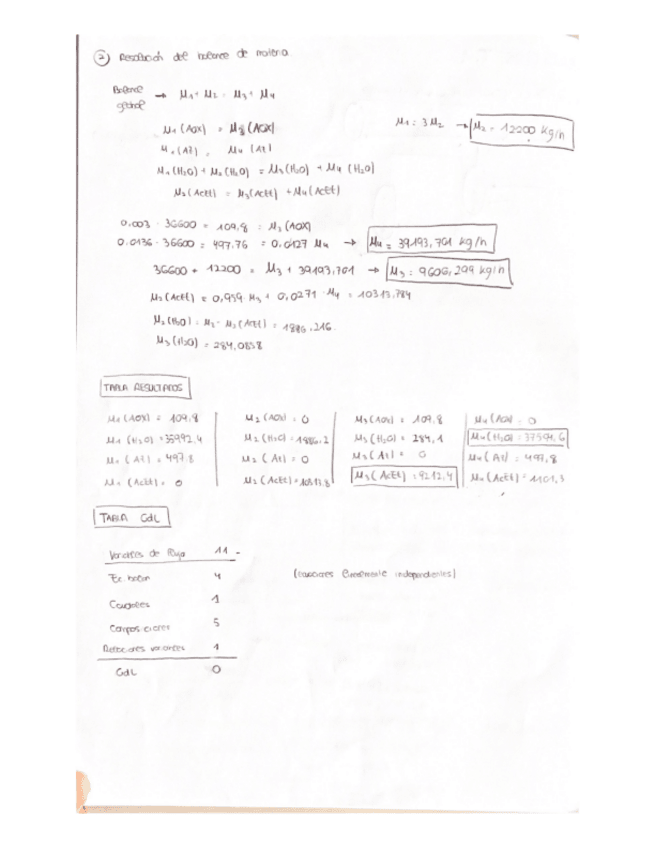 2) Resolución del balance de materia
Balance general → M1 + M2 = M3 + M4
M1 (AOX) = M3 (AOX)
M1 : 3M2 → M2 = 12200 kg/h
M1 (At) = M4 (At)
M1 (H2O) + M2 (H2O) = M3 (H2O) + M4 (H2O)
M2 (AcEt) = M3 (AcEt) + M4 (AcEt)
0,003 · 36600 = 109,8 = M3 (AOX)
0.0136 · 36600 = 497,76 = 0,0127 M4 → M4 = 39193,701 kg/h
36600 + 12200 = M3 + 39193,701 → M3 = 9606,299 kg/h
M2 (AcEt) = 0,959 M3 + 0,0271 · M4 = 10313,784
M2 (H2O) = M2 - M2 (AcEt) = 1886,216
M3 (H2O) = 284,0838
TABLA RESULTADOS
M1 (AOX) = 109,8 M2 (AOX) = 0 M3 (AOX) = 109,8 M4 (AOX) = 0
M1 (H2O) = 35992,4 M2 (H2O) = 1886,2 M3 (H2O) = 284,1 M4 (H2O) = 37594,6
M1 (At) = 497.8 M2 (At) = 0 M3 (At) = 0 M4 (At) = 497,8
M1 (AcEt) = 0 M2 (AcEt) = 10313,8 M3 (AcEt) = 9212,4 M4 (AcEt) = 1101,3
TABLA GdL
Variables de flujo 11
Ec. balan 4 (ecuaciones linealmente independientes)
Caudales 1
Composiciones 5
Relaciones variables 1
GdL 0